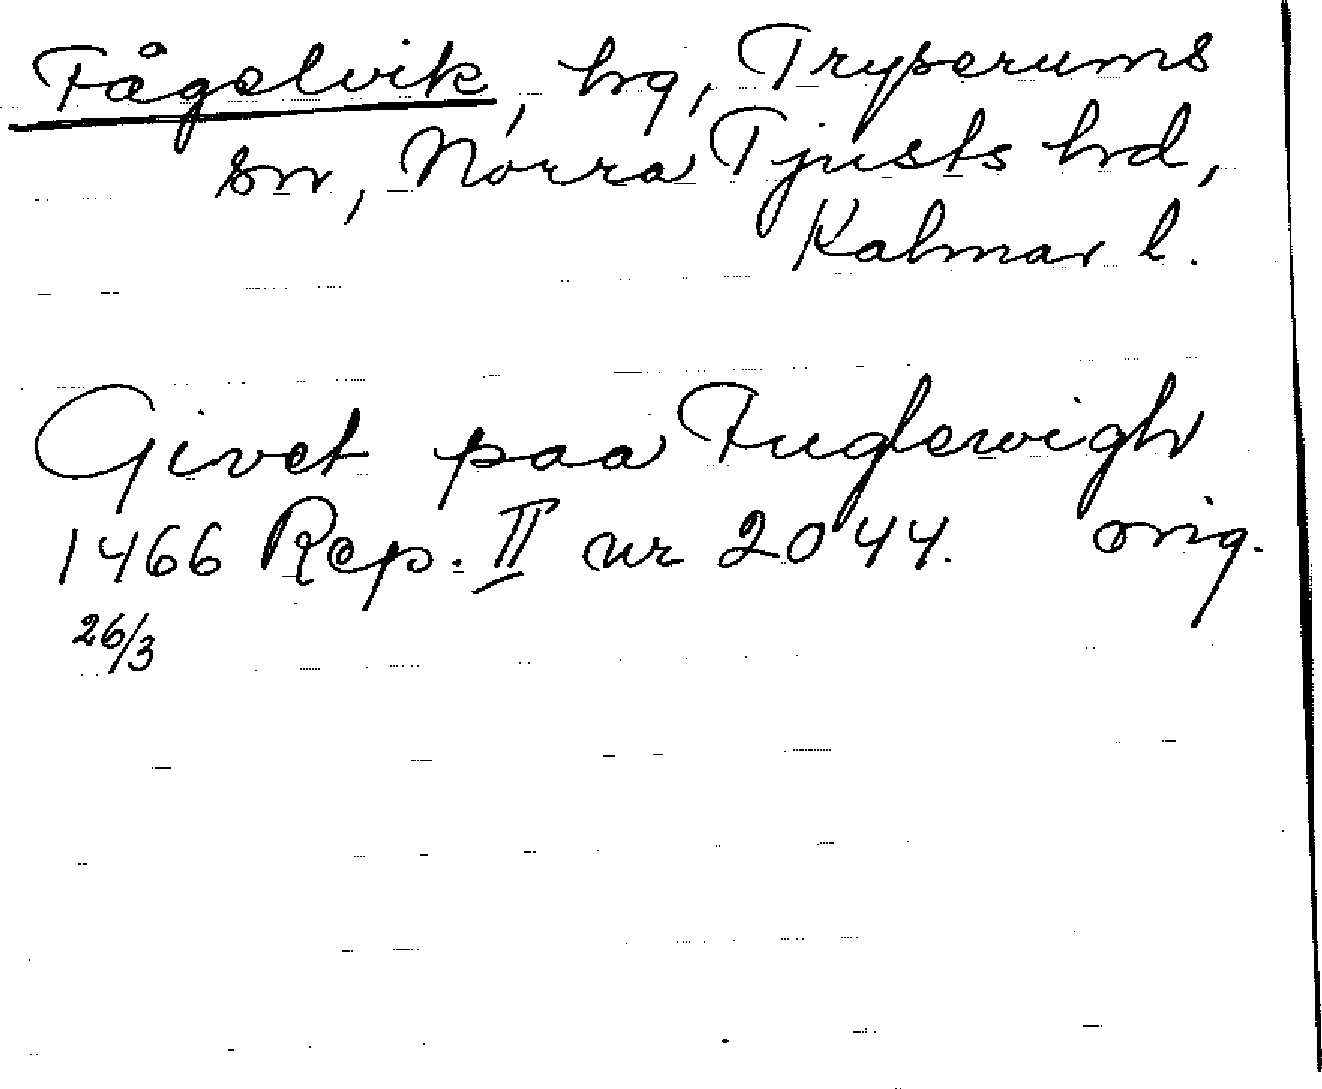 Fågelvik, hrg, Tryserums
sn, Norra Tjusts hrd,
Kalmar l.
Givet paa Fuglewigh
1466 Rep. II nr 2044. orig.
26/3